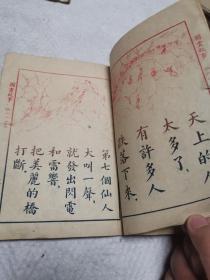 天上的仙
太多了,
有許多人
跌落下來.
第七個仙人
大叫一聲,
就發出閃電
和雷響,
把美麗的橋
打斷.